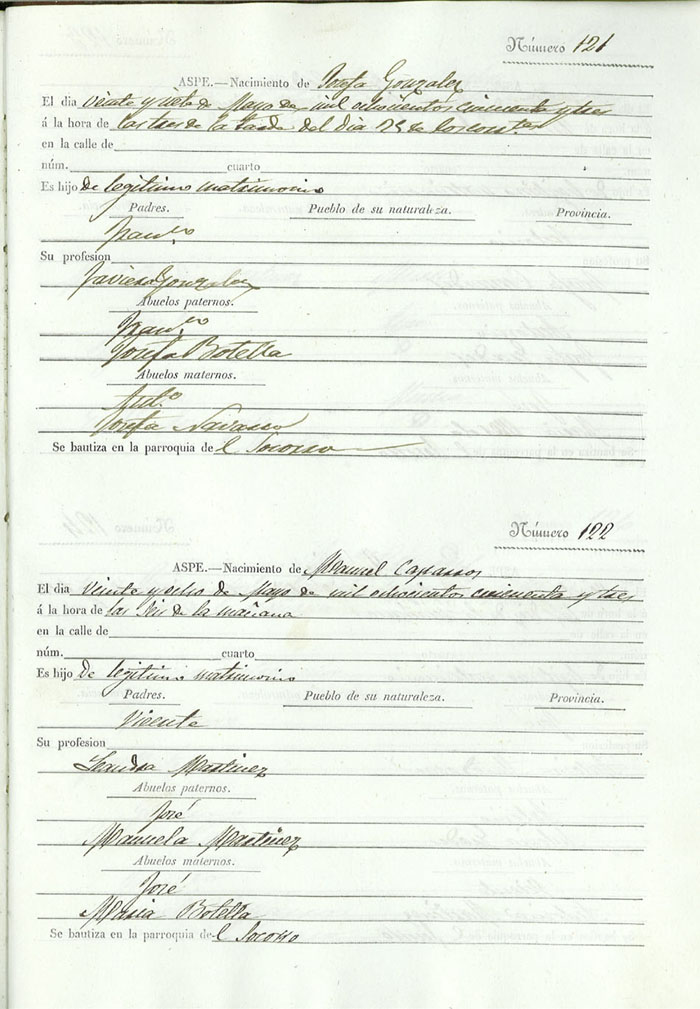 Número 121
ASPE.—Nacimiento de Josefa Gonzalez
El dia veinte y siete de Mayo de mil ochocientos cincuenta y tres
á la hora de las tres de la tarde del dia
en la calle de
núm. cuarto
Es hijo de legitimo matrimonio
Padres. Pueblo de su naturaleza. Provincia.
Franco
Su profesion
Javiera Gonzalez
Abuelos paternos.
Franco
Josefa Botella
Abuelos maternos.
Anto
Josefa Navarro
Se bautiza en la parroquia del Socorro
Número 122
ASPE.—Nacimiento de Manuel Caparros
El dia veinte y ocho de Mayo de mil ochocientos cincuenta y tres
á la hora de las seis de la mañana
en la calle de
núm. cuarto
Es hijo de legitimo matrimonio
Padres. Pueblo de su naturaleza. Provincia.
Vicente
Su profesion
Martinez
Abuelos paternos.
José
Manuela Martinez
Abuelos maternos.
José
Maria Botella
Se bautiza en la parroquia del Socorro